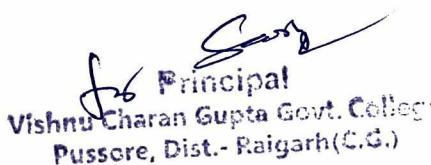 for
Principal
Vishnu Charan Gupta Govt. Colleg
Pussore, Dist.- Raigarh(C.G.)